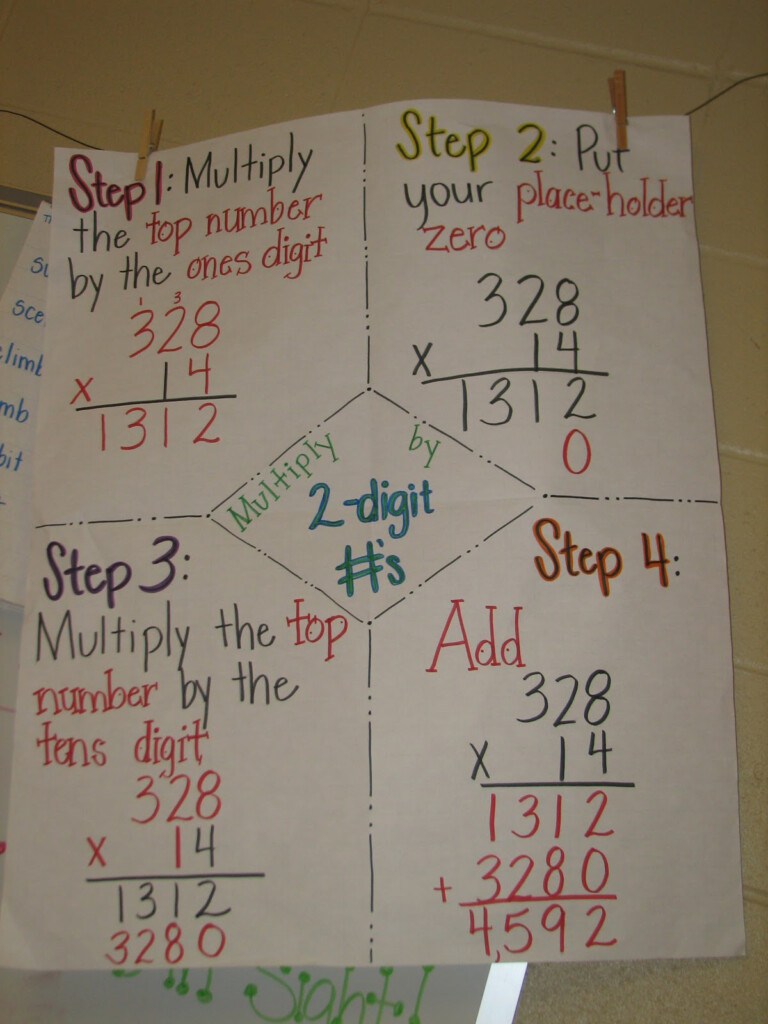 Step 1: Multiply
the top number
by the ones digit
1 3
328
x 14
1312
Step 2: Put
your place-holder
zero
328
x 14
1312
0
Multiply by
2-digit
#'s
Step 3:
Multiply the top
number by the
tens digit
328
x 14
1312
3280
Step 4:
Add
328
x 14
1312
+ 3280
4,592
mb
bit
Sight!